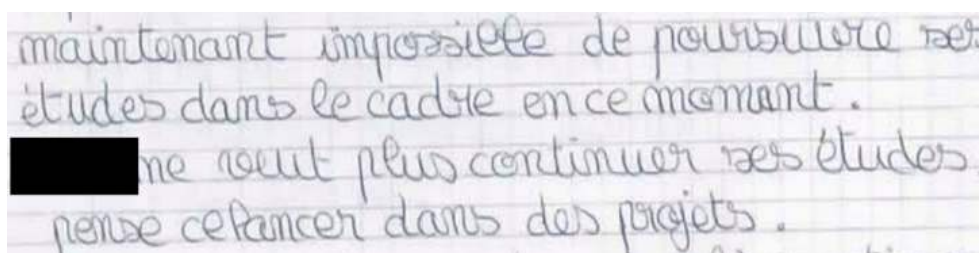 maintenant impossible de poursuivre ses
études dans le cadre en ce momant.
ne veut plus continuer ses études
pense celancer dans des projets.